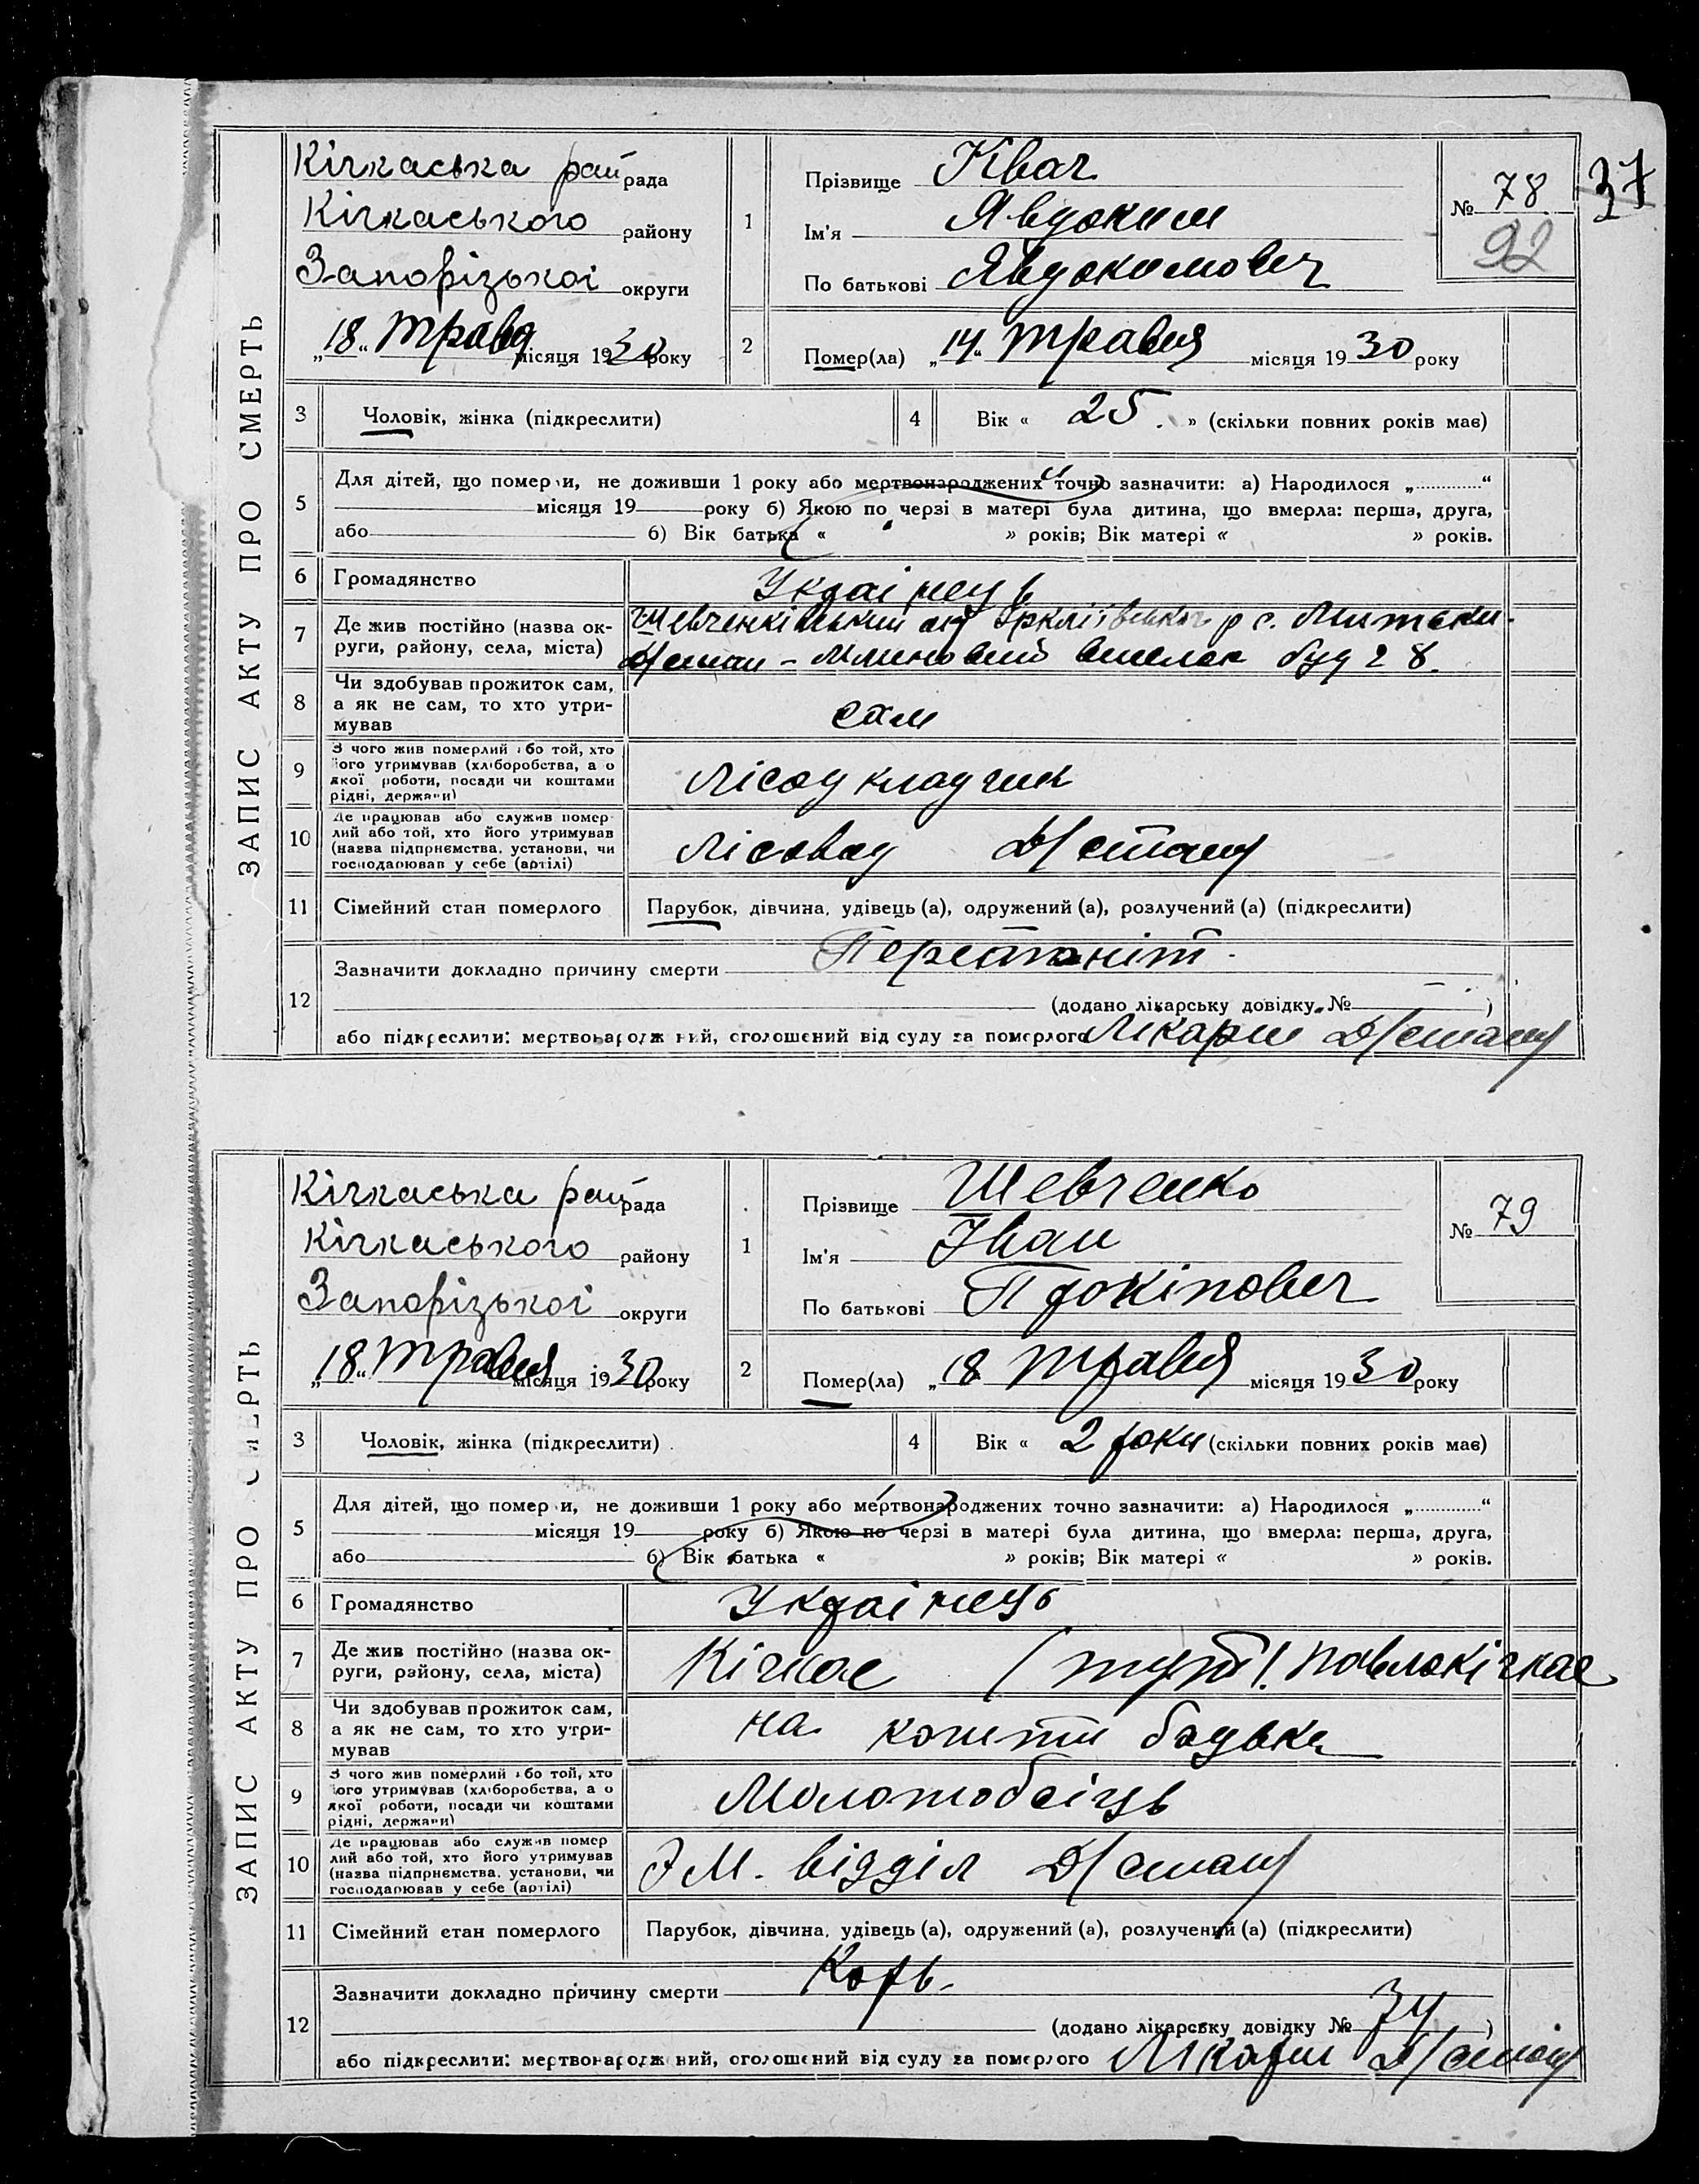 37
ЗАПИС АКТУ ПРО СМЕРТЬ
Кічкаська рай рада
Кічкаського району
Запорізькоі округи
„18“ травя місяця 1930 року
1
Прізвище Квач
Ім'я Явдоким
По батькові Явдокимович
№ 78
92
2
Помер(ла) „14“ травня місяця 1930 року
3 Чоловік, жінка (підкреслити)
4 Вік « 25. » (скільки повних років має)
5
Для дітей, що померли, не доживши 1 року або мертвонароджених точно зазначити: а) Народилося „ “
місяця 19 року б) Якою по черзі в матері була дитина, що вмерла: перша, друга,
або б) Вік батька « » років; Вік матері « » років.
6 Громадянство Украінець
7 Де жив постійно (назва округи, району, села, міста)
Шевченківський Іркліівськог р с.
буд 28.
8 Чи здобував прожиток сам,
а як не сам, то хто утримував
сам
9 З чого жив померлий або той, хто
його утримував (хліборобства, а о
якої роботи, посади чи коштами
рідні, держави)
лісоукладчик
10 Де працював або служив помер
лий або той, хто його утримував
(назва підприємства, установи, чи
господарював у себе (артілі)
Лісовод Д/стану
11 Сімейний стан померлого Парубок, дівчина, удівець (а), одружений (а), розлучений (а) (підкреслити)
12
Зазначити докладно причину смерти Перетоніт.
(додано лікарську довідку № )
або підкреслити: мертвонароджений, оголошений від суду за померлого Лікарні Д/стану
ЗАПИС АКТУ ПРО СМЕРТЬ
Кічкаська рай рада
Кічкаського району
Запорізькоі округи
„18“ травня місяця 1930 року
1
Прізвище Шевченко
Ім'я Іван
По батькові Прокіпович
№ 79
2
Помер(ла) „18 травня місяця 1930 року
3 Чоловік, жінка (підкреслити)
4 Вік « 2 роки (скільки повних років має)
5
Для дітей, що померли, не доживши 1 року або мертвонароджених точно зазначити: а) Народилося „ “
місяця 19 року б) Якою по черзі в матері була дитина, що вмерла: перша, друга,
або б) Вік батька « » років; Вік матері « » років.
6 Громадянство Украінець
7 Де жив постійно (назва округи, району, села, міста)
Кічкас (тут). Павлокічкас
8 Чи здобував прожиток сам,
а як не сам, то хто утримував
на кошти бадька
9 З чого жив померлий або той, хто
його утримував (хліборобства, а о
якої роботи, посади чи коштами
рідні, держави)
Молотобоіць
10 Де працював або служив помер
лий або той, хто його утримував
(назва підприємства, установи, чи
господарював у себе (артілі)
Э М. відділ Д/стану
11 Сімейний стан померлого Парубок, дівчина, удівець (а), одружений (а), розлучений (а) (підкреслити)
12
Зазначити докладно причину смерти Корь.
(додано лікарську довідку № 34 )
або підкреслити: мертвонароджений, оголошений від суду за померлого Лікарні Д/стану